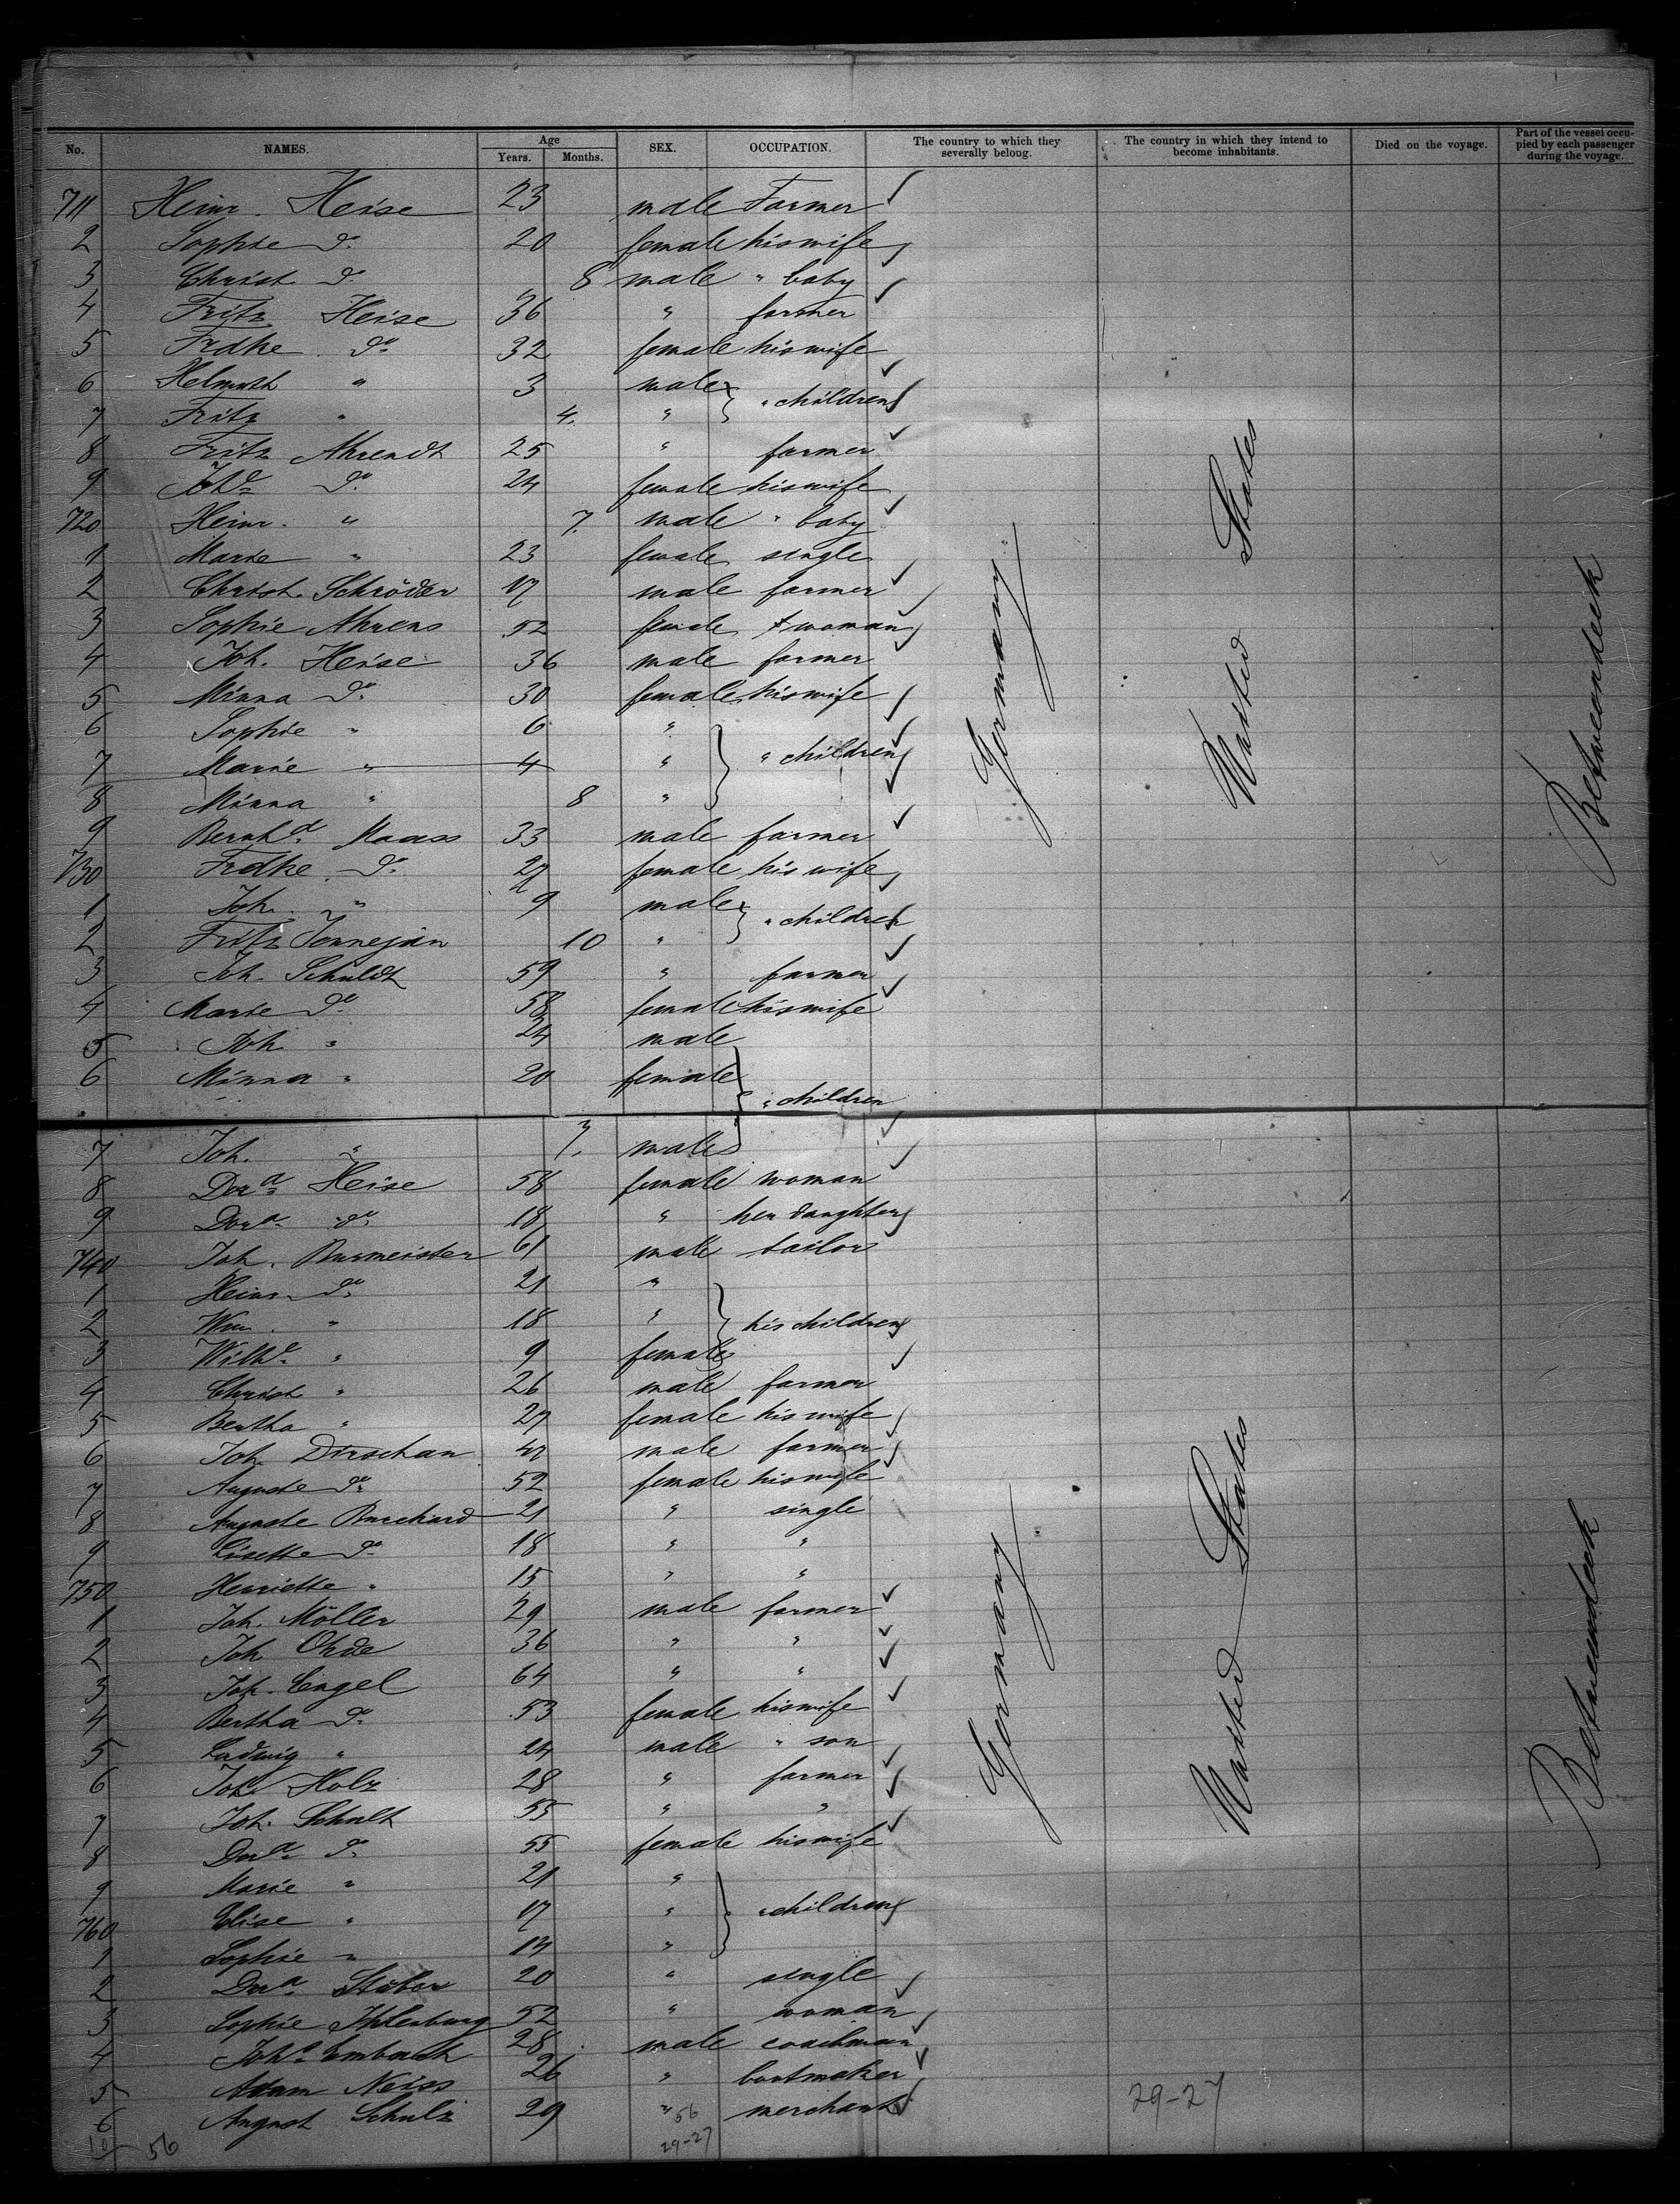 No. NAMES. Age Years. Months. SEX. OCCUPATION. The country to which they severally belong. The country in which they intend to become inhabitants. Died on the voyage. Part of the vessel occupied by each passenger during the voyage.
711 Heinr. Heise 23 male Farmer
2 Sophie do 20 female his wife
3 Christ. do 8 male " baby
4 Fritz Heise 36 " farmer
5 Frdke do 32 female his wife
6 Helmuth " 3 male
7 Fritz " 4. " " children
8 Fritz Ahrendt 25 " farmer
9 Johe do 24 female his wife
720 Heinr. " 7. male " baby
1 Marie " 23 female single
2 Christ. Schröder 17 male farmer
3 Sophie Ahrens 52 female woman
4 Joh. Heise 36 male farmer
5 Minna do 30 female his wife
6 Sophie " 6 "
7 Marie " 4 " " children
8 Minna " 8 "
9 Bernhd Maass 33 male farmer
730 Frdke do 27 female his wife
1 Joh. " 9 male
2 Fritz 10 " " children
3 Joh. Schuldt 59 " farmer
4 Marie do 58 female his wife
5 Joh " 24 male
6 Minna " 20 female
" children
7 Joh. " 7. male
8 Dora Heise 58 female woman
9 Dora do 18 " her daughter
740 Joh. Burmeister 61 male tailor
1 Heinr do 21 "
2 Wm. " 18 " his children
3 Wilhe " 9 female
4 Christ. " 26 male farmer
5 Bertha " 27 female his wife
6 Joh. Dirschau 47 male farmer
7 Auguste do 52 female his wife
8 Auguste Burchard 21 " single
9 Lisette do 18 " "
750 Henriette " 15 " "
1 Joh. Möller 29 male farmer
2 Joh Ohde 36 " "
3 Joh. Engel 64 " "
4 Bertha do 53 female his wife
5 Ludwig " 24 male " son
6 Joh. Holz 28 " farmer
7 Joh. Schult 55 " "
8 Dora do 55 female his wife
9 Marie " 21 "
760 Elise " 17 " " children
1 Sophie " 14 "
2 Dora Stüber 20 " single
3 Sophie Ihlenburg 52 " woman
4 Johs Embach 28 male coachman
5 Adam Neiss 26 " bootmaker
6 August Schulz 29 " merchant
56
56
29-27
29-27
Germany
United States
Betweendeck
Germany
United States
Betweendeck